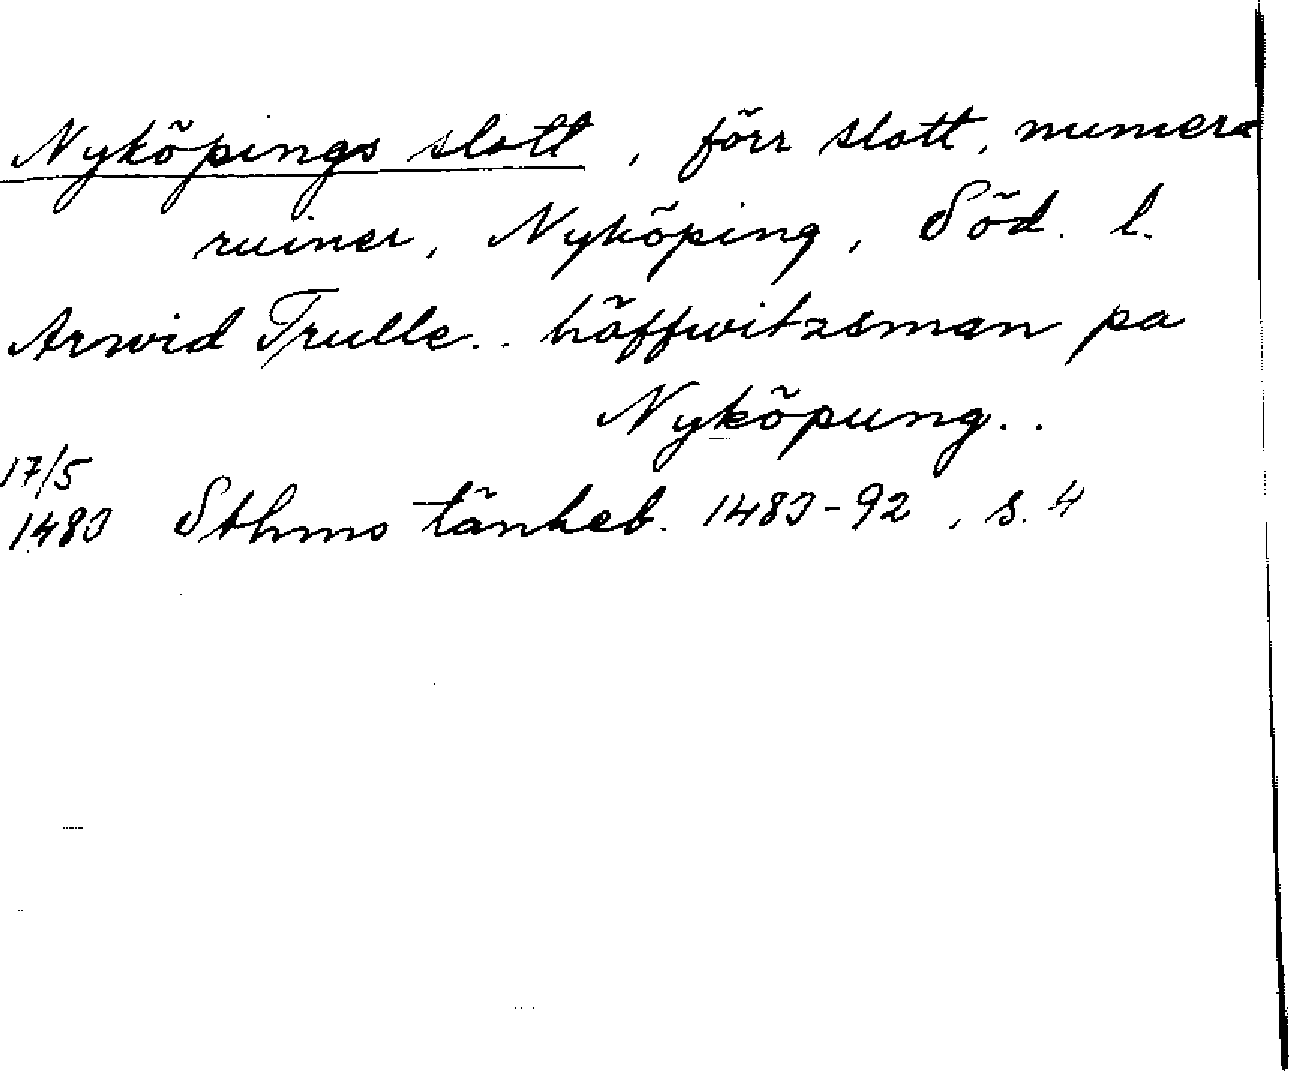 Nyköpings slott, förr slott, numera
ruiner, Nyköping, Söd. l.
Arwid Trulle.. höffwitzsman pa
Nyköpung..
17/5
1483 Sthms tänkeb. 1483-92, s. 4